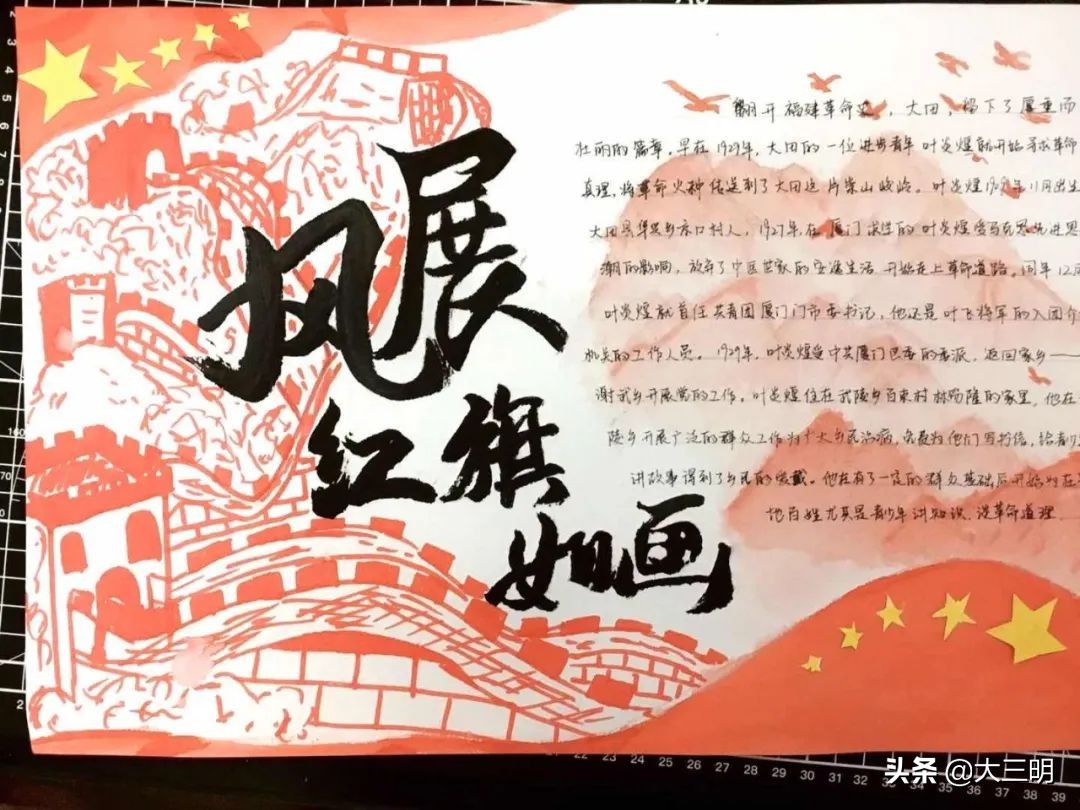 风展
红旗
如画
翻开福建革命史，大田，留下了厚重而
壮丽的篇章。早在1929年，大田的一位进步青年叶炎煌就开始寻求革命
真理，将革命火种传送到了大田这片崇山峻岭。叶炎煌19年11月出生
大田县华兴乡京口村人，1927年，在厦门求学的叶炎煌受马克思先进思
潮的影响，放弃了中医世家的安逸生活，开始走上革命道路。同年12月
叶炎煌就首任共青团厦门市委书记，他还是叶飞将军的入团介
机关的工作人员。1929年，叶炎煌受中共厦门区委的委派，返回家乡——
谢武乡开展党的工作。叶炎煌住在武陵乡百束村林隆的家里。他在
陵乡开展广泛的群众工作为广大乡民治病，免费为他们写书信，给青少
讲故事得到了乡民的爱戴。他在有了一定的群众基础后开始在
地百姓尤其是青少年讲知识、谈革命道理
头条 @大三明